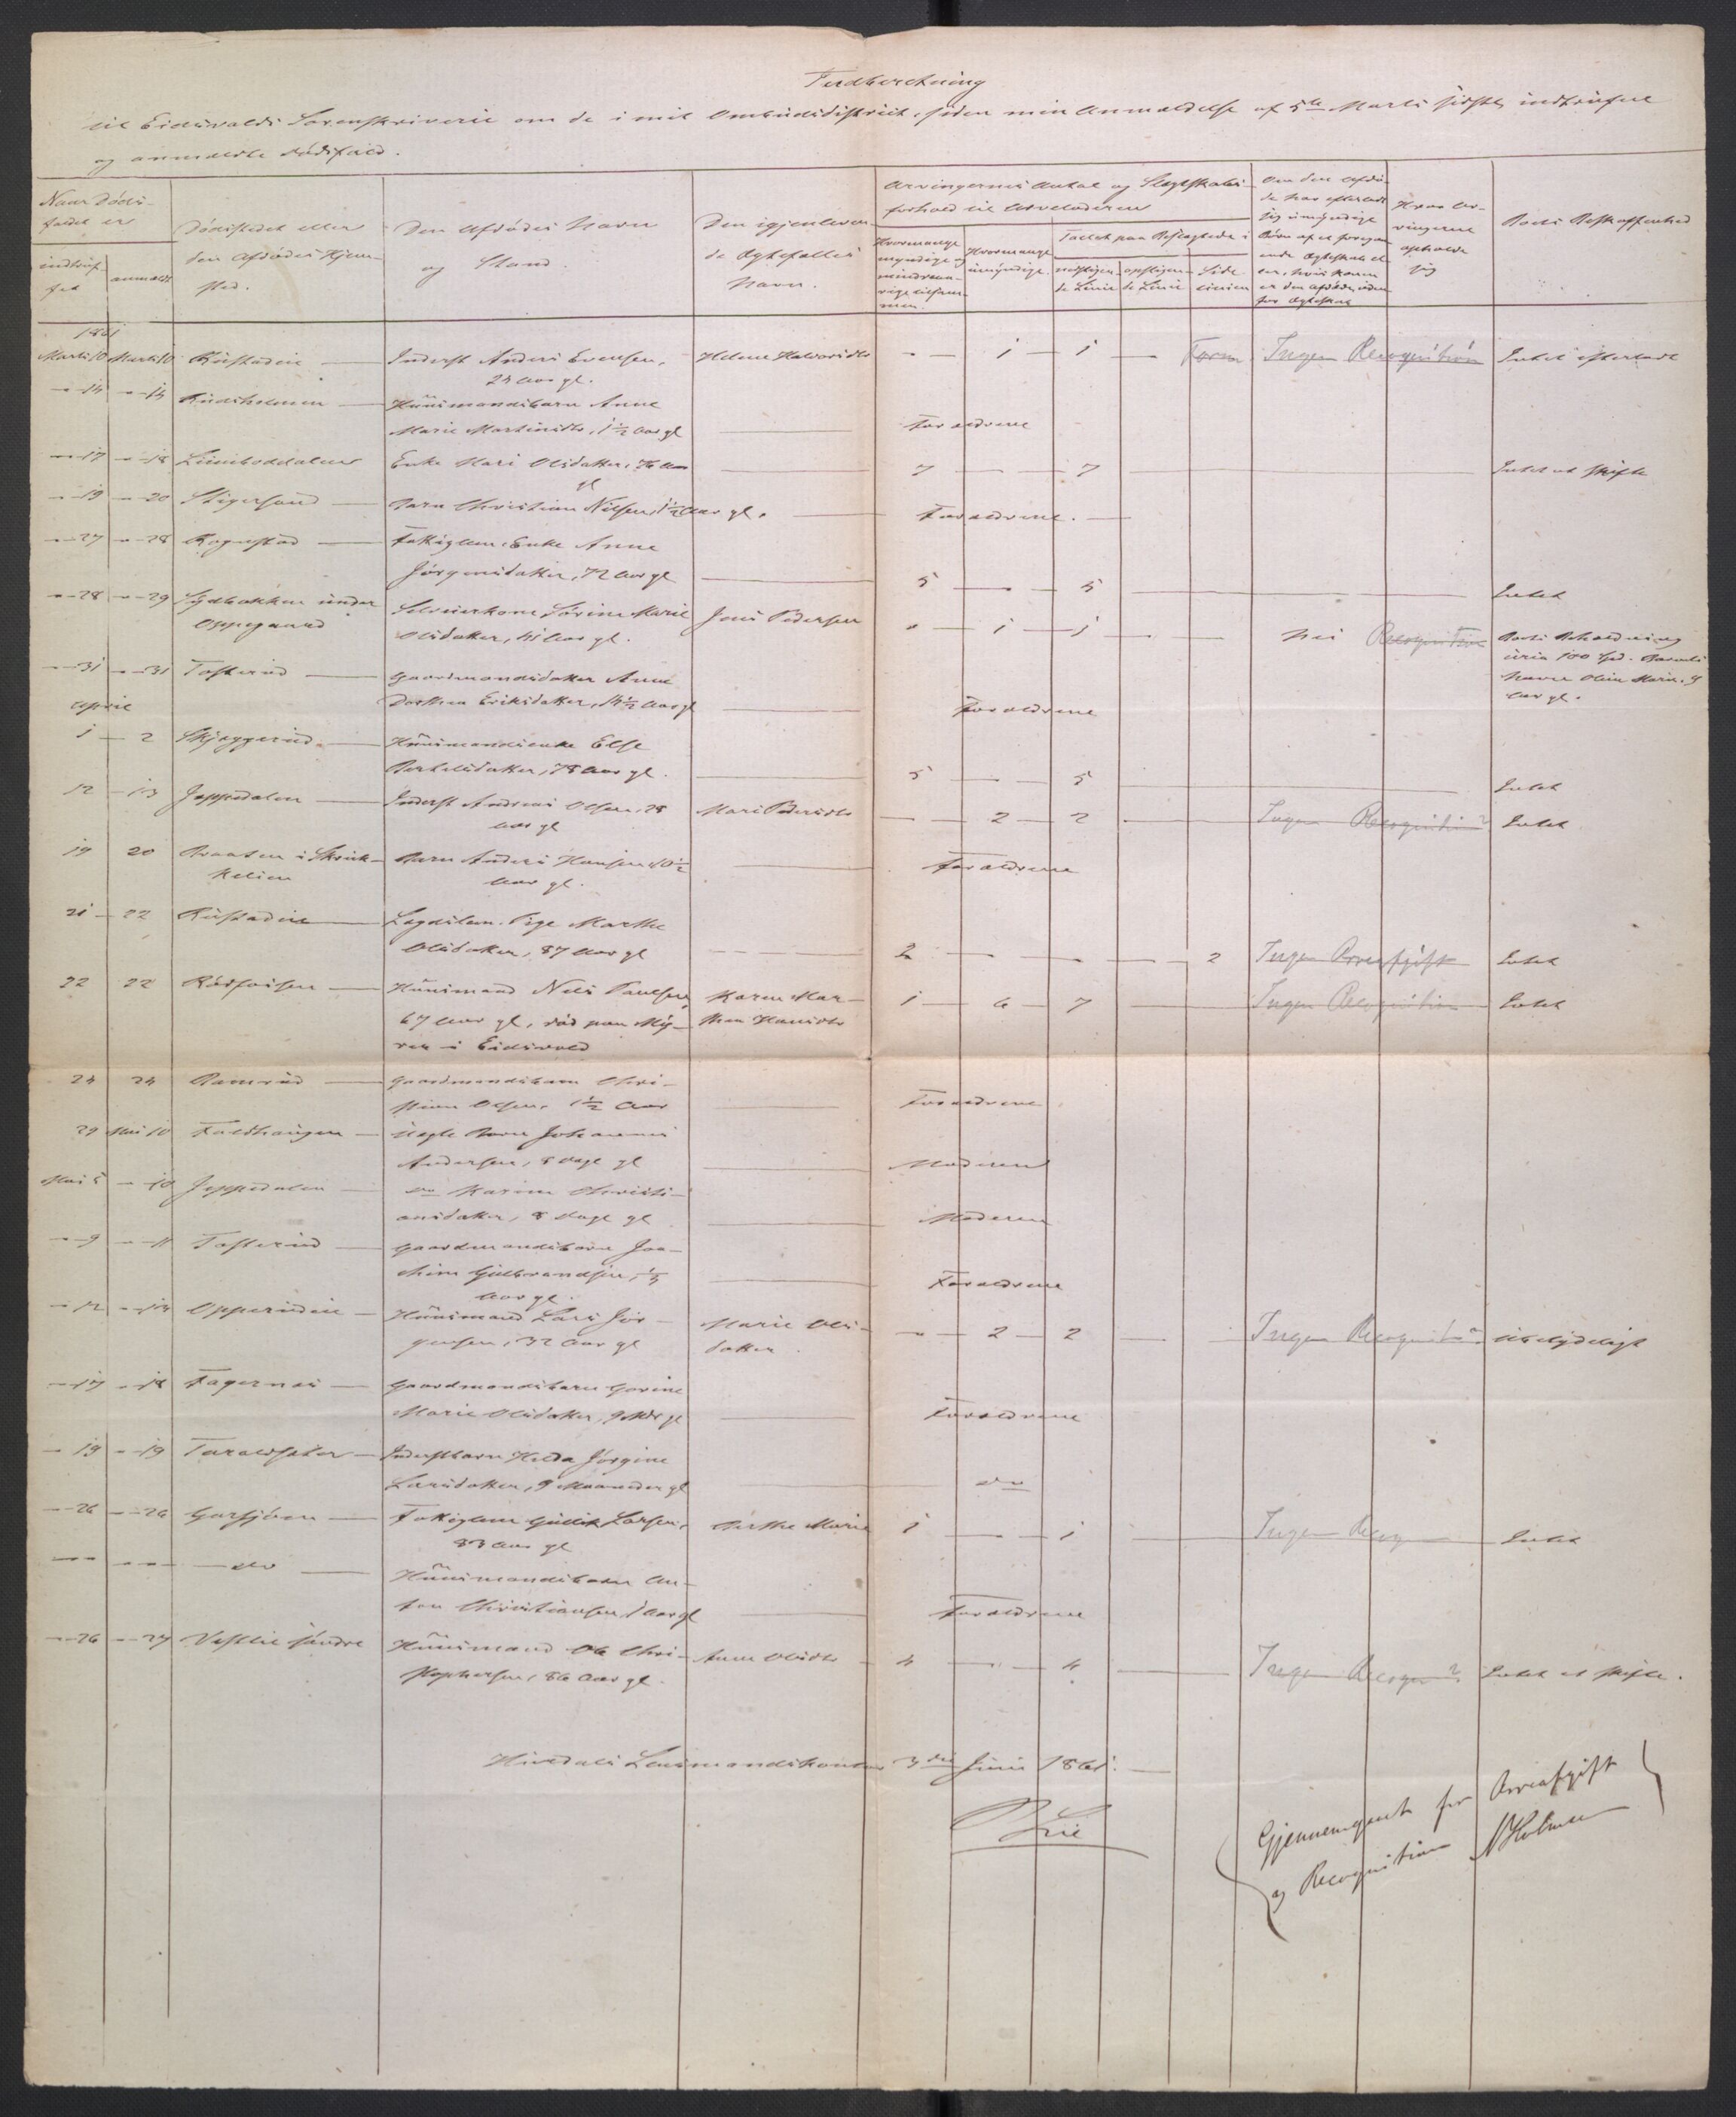 Indberetning
til Eidsvolds Sorenskriverie om de i mit Ombudsdistrict, siden min Anmeldelse af 5te Marts sidstl. indtrufne
og anmeldte Dødsfald.
Naar Dødsfaldet er
indtruffet
anmeldt
Dødsstedet eller
den Afdødes Hjemsted.
Den Afdødes Navn
og Stand.
Den igjenlevende Ægtefælles
Navn.
Arvingernes Antal og Slægtskabsforhold til Arveladeren
Hvormange
myndige og
mindreaarige tilsammen
Hvormange
umyndige.
Tallet paa Beslægtede i
nedstigende Linie
opstigende Linie
Sidelinien
Om den Afdøde har efterladt
sig umyndige
Børn af et foregaaende Ægteskab eller, hvis Konen
er den Afdøde, uden
for Ægteskab
Hvor Arvingerne
opholde
sig
Boets Beskaffenhed
1861
Marts 10 Marts 10 Rustadeie — Inderst Anders Evensen, Helene Halvorsdtr - — 1 — 1 — Ingen Recognition Intet efterladt
24 Aar gl.
- 14 - 14 Rudsholmen — Huusmandsbarn Anne
Marie Martinsdtr, 1½ Aar gl — Forældrene
- 17 - 18 Enke Mari Olsdatter, 76 Aar
gl — 7 — 7 — Intet at skifte
- 19 - 20 Stigersand — Barn Christian Nilsen, 1½ Aar gl. — Forældrene. —
- 27 - 28 Rognstad — Fattiglem Enke Anne
Jørgensdatter, 72 Aar gl — 5 — 5 — Intet
- 28 - 29 Sydbakken under Selveierkone Sørine Marie Jens Pedersen - 1 — 1 — Nei Recognition Boets Beholdning
Oppegaard Olsdatter, 41 Aar gl. circa 100 Spd. Barnets
Navn Oline Marie, 9
Aar gl.
- 31 - 31 Tosterud — Gaardmandsdatter Anne
Dorthea Eriksdatter, 14½ Aar gl — Forældrene
April
1 — 2 Skjæggerud — Huusmandsenke Else
Bertelsdatter, 78 Aar gl. — 5 — 5 — Intet
12 — 13 Jeppedalen — Inderst Andreas Olsen, 28 Mari Pedersdtr — 2 — 2 — Ingen Recognition Intet
Aar gl
19 20 Braaten i Barn Anders Hansen, 10½ — Forældrene
Aar gl.
21 — 22 Rustadeie — Lægdslem. Pige Marthe
Olsdatter, 87 Aar gl — 2 — 2 Ingen Arveafgift Intet
22 22 — Huusmand Nels Paulsen, Karen Marthea Hansdtr 1 — 6 — 7 — Ingen Recognition Intet
67 Aar gl, død paa Myren i Eidsvold
24 24 Ramrud — Gaardmandsbarn Christian Olsen, 1½ Aar — Forældrene
29 Mai 10 Faldhaugen — Uægte Barn Johannes
Andersen, 8 Dage gl — Moderen
Mai 5 - 10 Jeppedalen — do Karine Christiansdatter, 8 Dage gl — Moderen
- 9 - 11 Tosterud — Gaardmandsbarn Joachim Gulbrandsen,
Aar gl. — Forældrene
- 12 - 14 Opperudeie — Huusmand Lars Jørgensen, 32 Aar gl Marie Olsdatter. — 2 — 2 — Ingen Recognition Ubetydeligt
- 17 - 18 Fagernes — Gaardmandsbarn Gorine
Marie Olsdatter, 9 Mdr gl — Forældrene
- 19 - 19 Taraldsæter — Inderstbarn Hilda Jørgine
Larsdatter, 9 Maaneder gl — do
- 26 - 26 Garsjøen — Fattiglem Gullik Larsen, Berthe Marie 1 — 1 — Ingen Recog Intet
83 Aar gl
- - do — Huusmandsbarn Anton Christiansen, 1 Aar gl — Forældrene
- 26 - 27 Vestlie søndre Huusmand Ole Christophersen, 86 Aar gl. Anne Olsdtr 4 — 4 — Ingen Recogn Intet at skifte.
Hurdals Lensmandskontor 3die Juni 1861. —
Lie
Gjennemgaaet for Arveafgift
og Recognition NHolmen